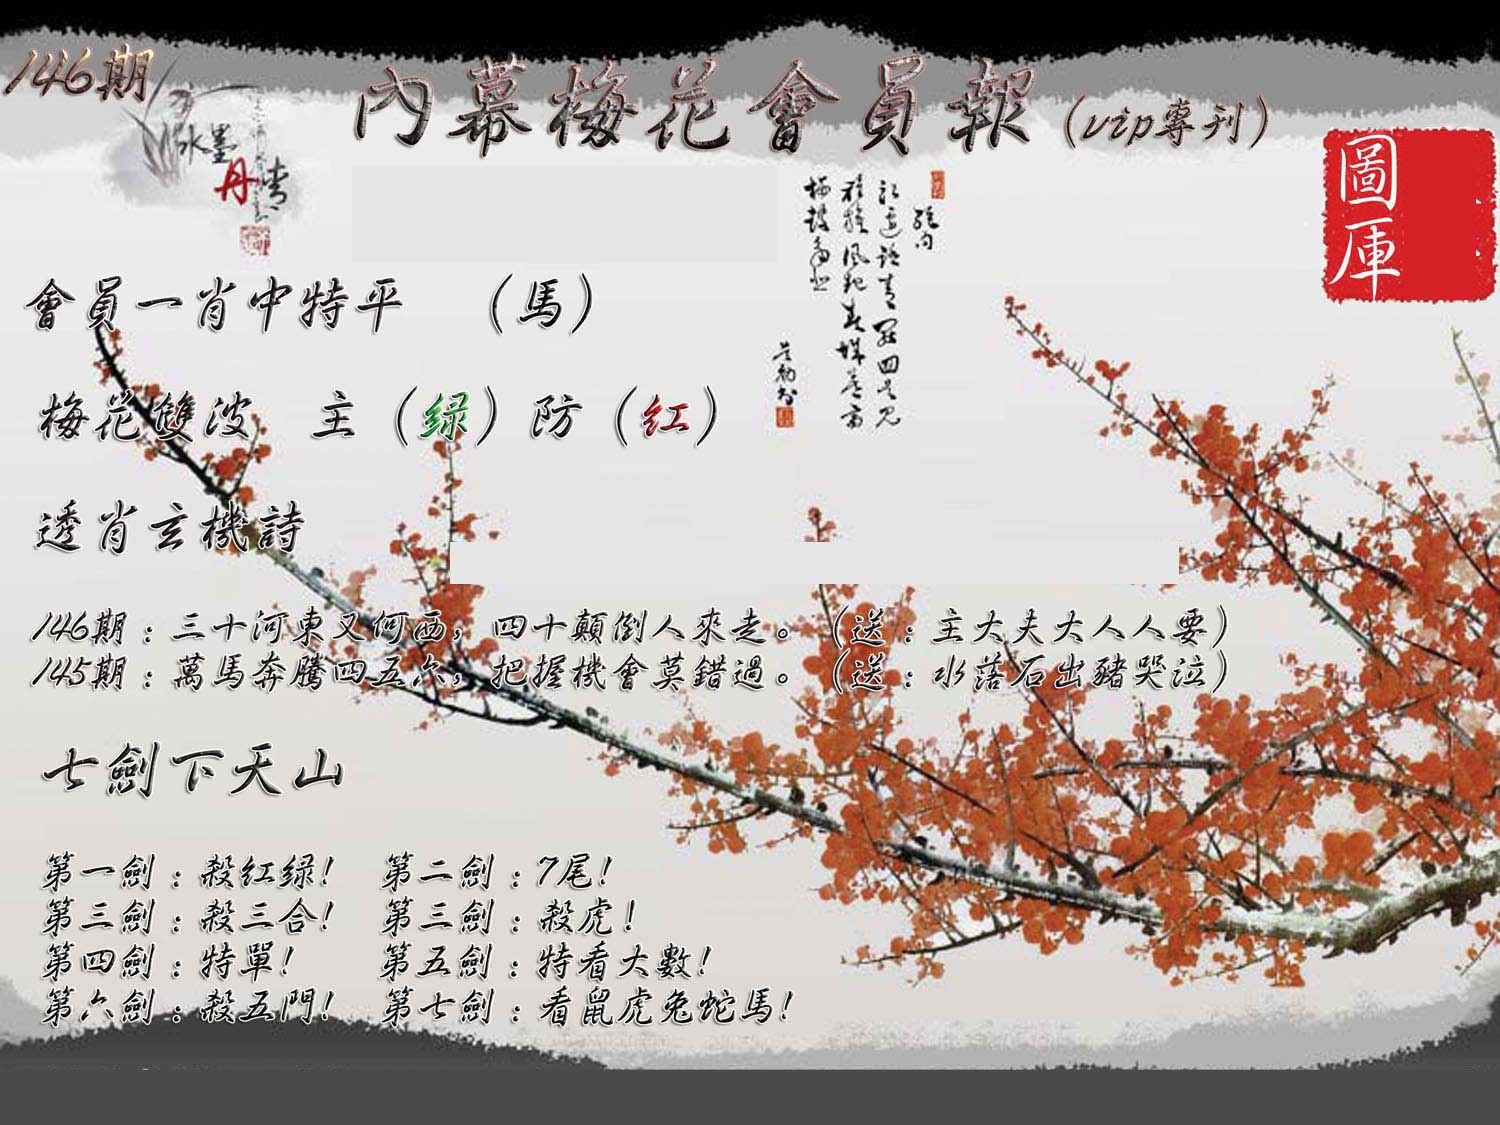 146期
內幕梅花會員報（vip專刊）
水墨
丹青
圖庫
會員一肖中特平　（馬）
梅花雙波　主（绿）防（红）
透肖玄機詩
146期：三十河東又何西，四十顛倒人來走。（送：主大夫大人人要）
145期：萬馬奔騰四五六，把握機會莫錯過。（送：水落石出豬哭泣）
七劍下天山
第一劍：殺红绿!　第二劍：7尾!
第三劍：殺三合!　第三劍：殺虎!
第四劍：特單!　第五劍：特看大數!
第六劍：殺五門!　第七劍：看鼠虎兔蛇馬!